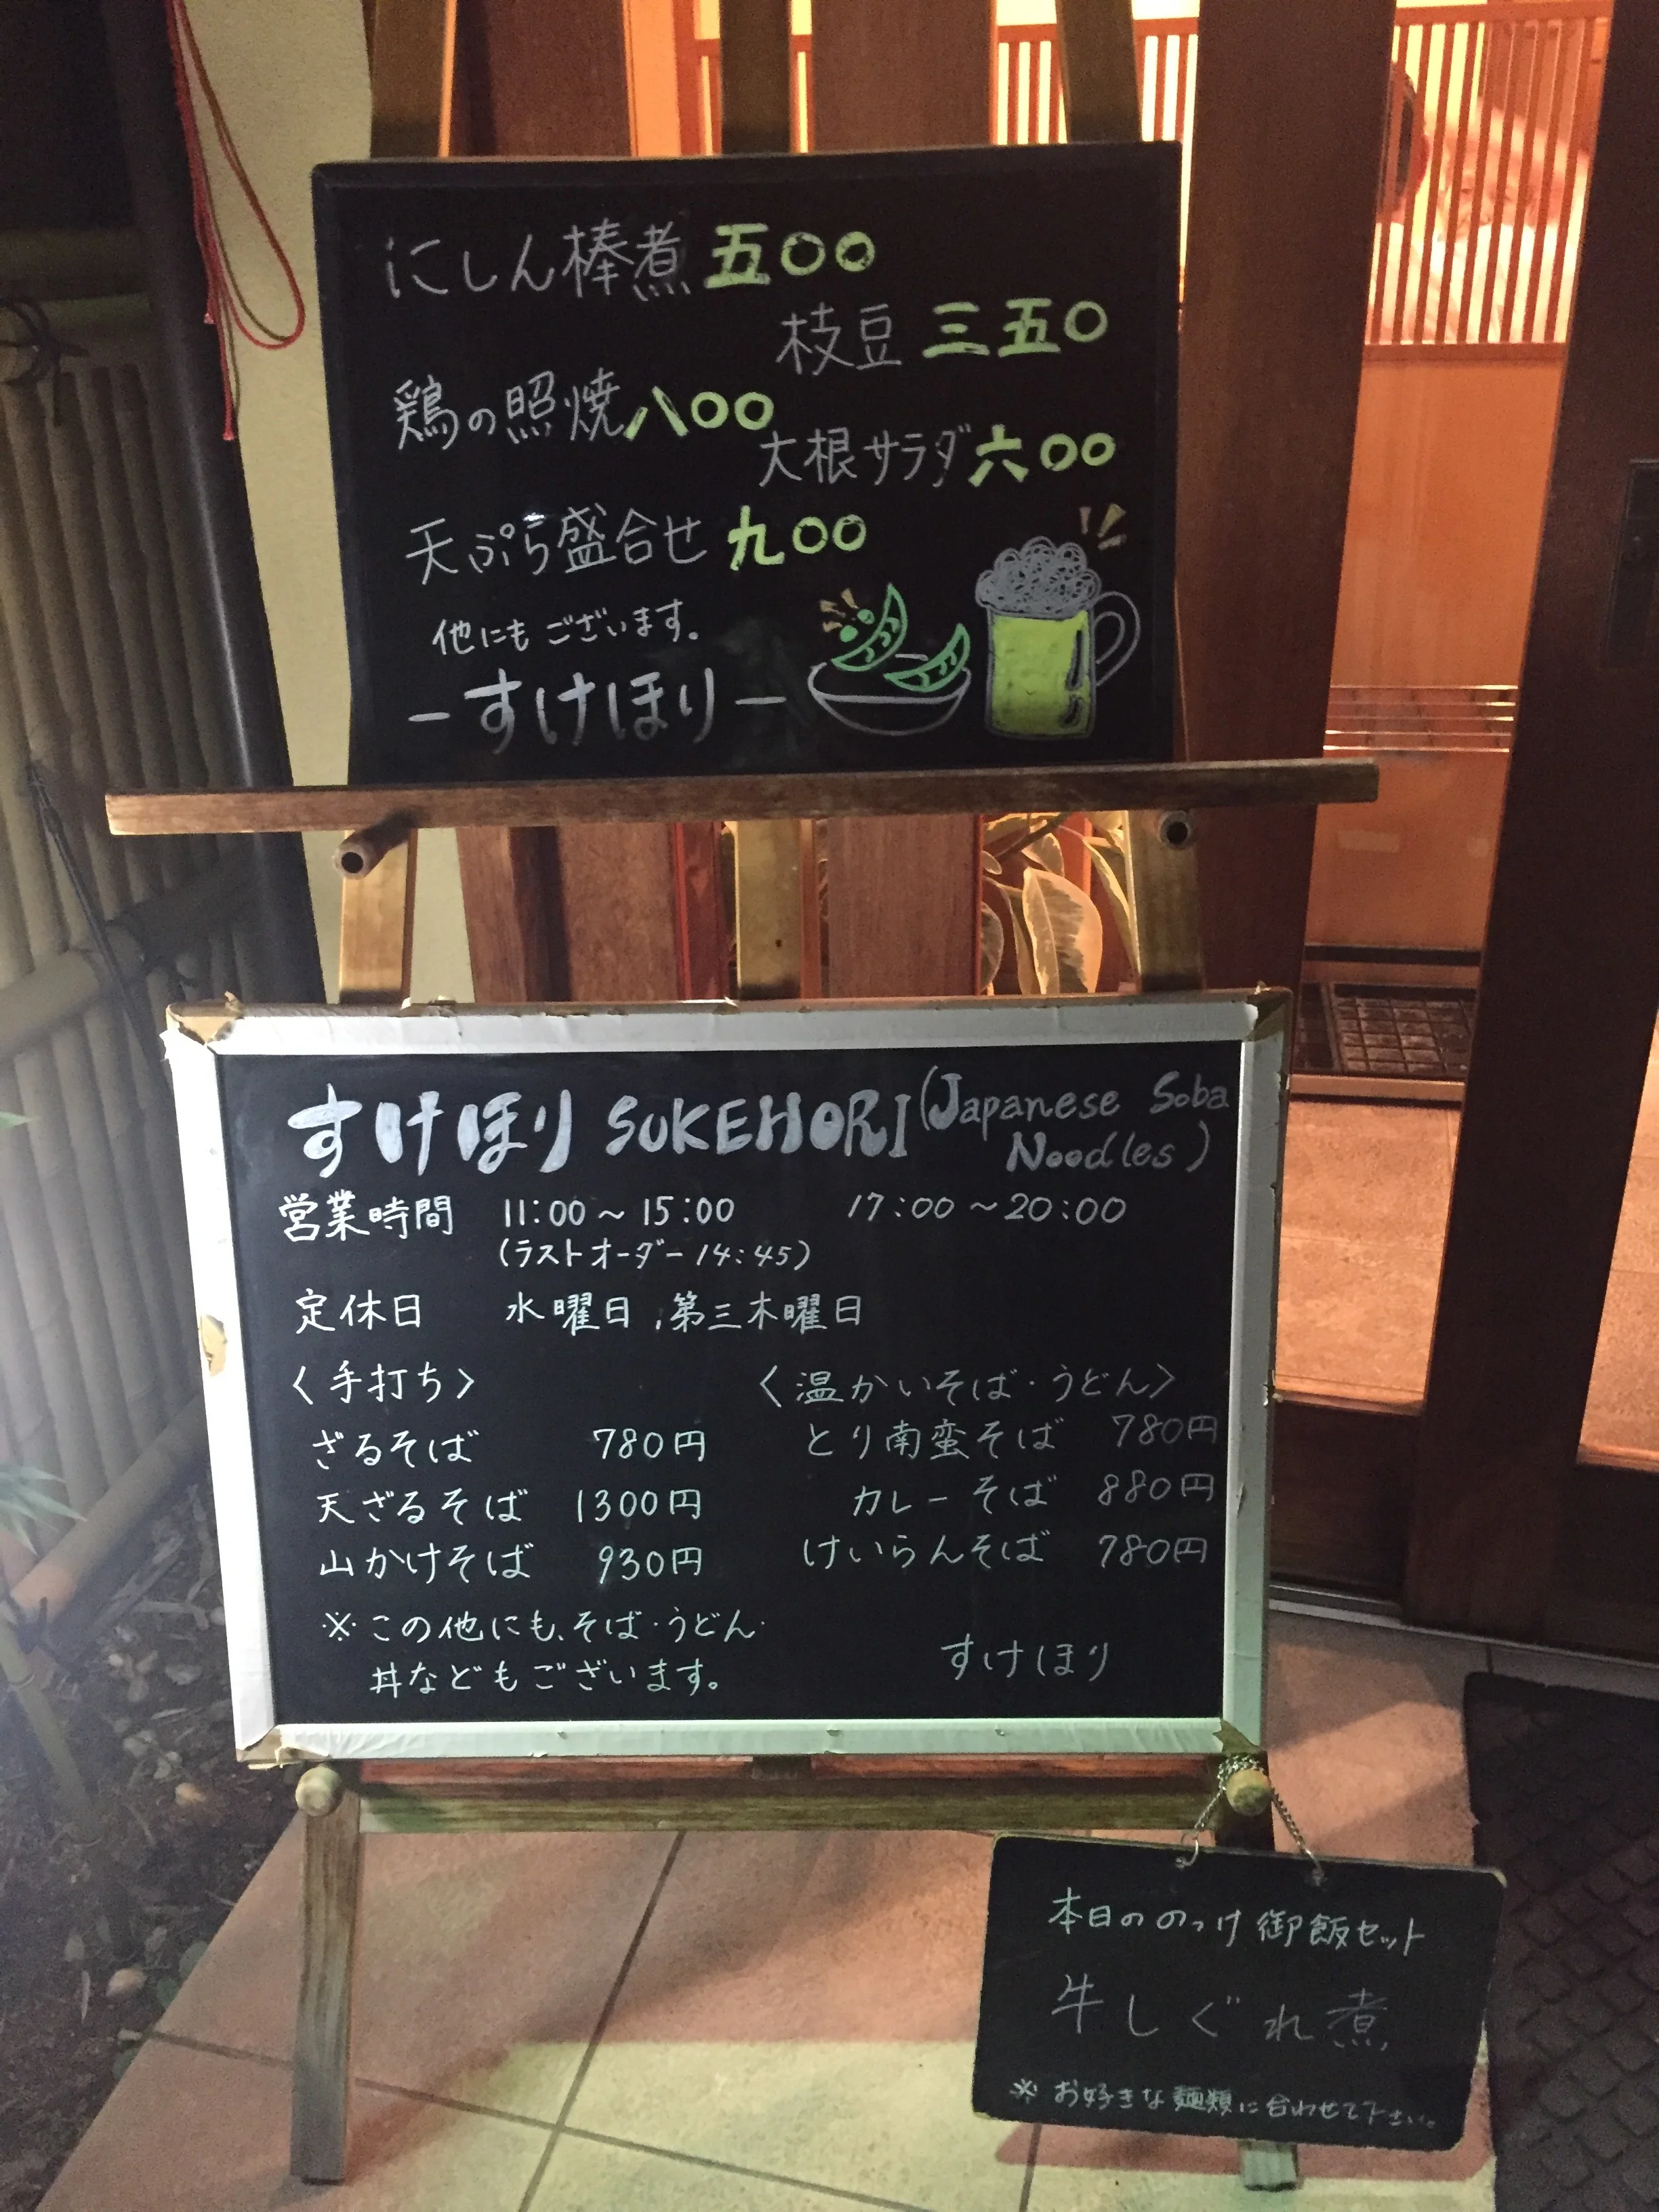 にしん棒煮 五〇〇
枝豆 三五〇
鶏の照焼 八〇〇
大根サラダ 六〇〇
天ぷら盛合せ 九〇〇
他にもございます。
-すけほり-
すけほり SUKEHORI (Japanese Soba
Noodles)
営業時間 11:00~15:00 17:00~20:00
(ラストオーダー14:45)
定休日 水曜日、第三木曜日
〈手打ち〉
ざるそば 780円
天ざるそば 1300円
山かけそば 930円
※この他にも、そば・うどん・
丼などもございます。
〈温かいそば・うどん〉
とり南蛮そば 780円
カレーそば 880円
けいらんそば 780円
すけほり
本日ののっけ御飯セット
牛しぐれ煮
※お好きな麺類に合わせて下さい。